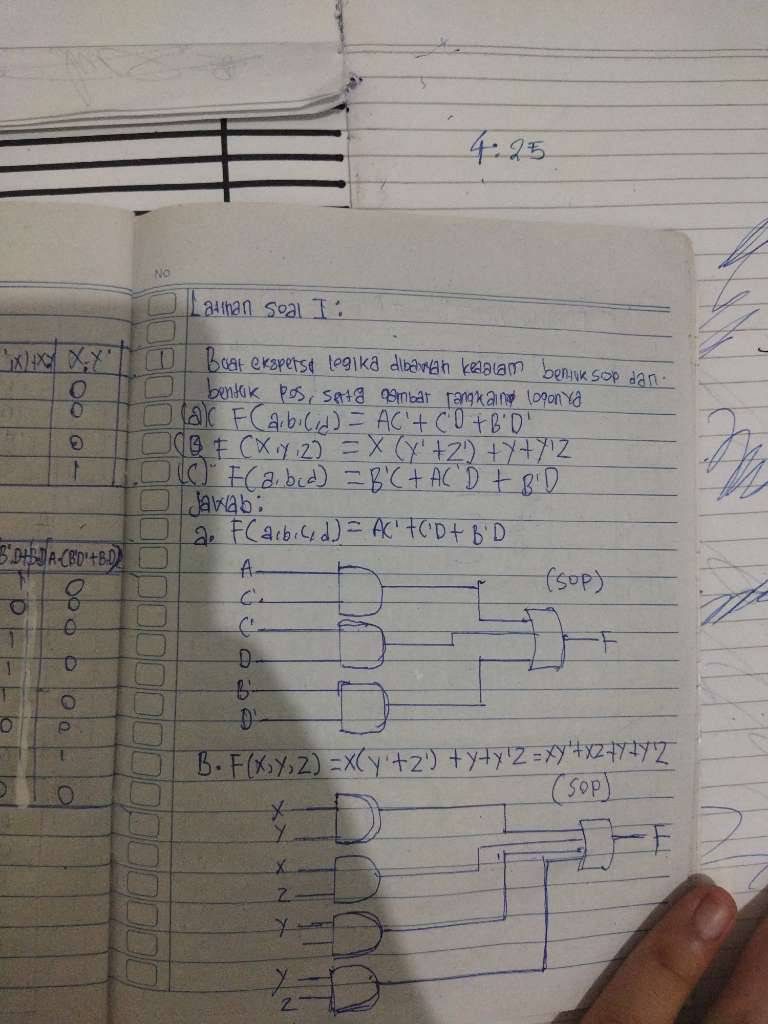 4:25
NO
Latihan soal I:
1 Buat ekspersi logika dibawah kedalam bentuk sop dan
bentuk pos, serta gambar rangkaian loganya
(a) F(a,b,c,d) = AC' + C'D + B'D'
(B) F(X,Y,Z) = X(Y'+Z') + Y + Y'Z
(C) F(a,b,c,d) = B'C + AC'D + B'D
Jawab:
a. F(a,b,c,d) = AC' + C'D + B'D
A
C'
(SOP)
C'
D
F
B'
D'
B. F(X,Y,Z) = X(Y'+Z') + Y+Y'Z = XY'+XZ+Y+Y'Z
(SOP)
X
Y
F
X
Z
Y
Y
Z
X.Y'
0
0
0
1
B'D+B.D A.(B'D'+B.D)
1 0
0 0
1 0
1 0
1 0
0 0
1 1
0 0